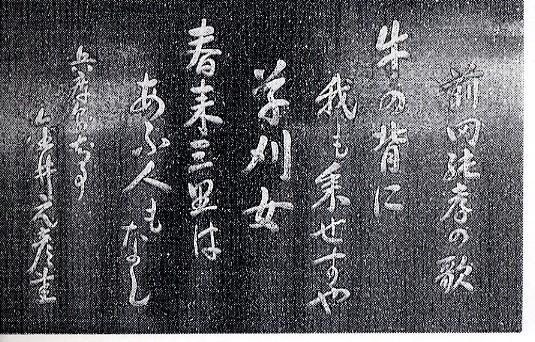 前田純孝の歌
牛の背に
我も乗せずや
草刈女
春来三里は
あふ人もなし
兵庫県知事
金井元彦書